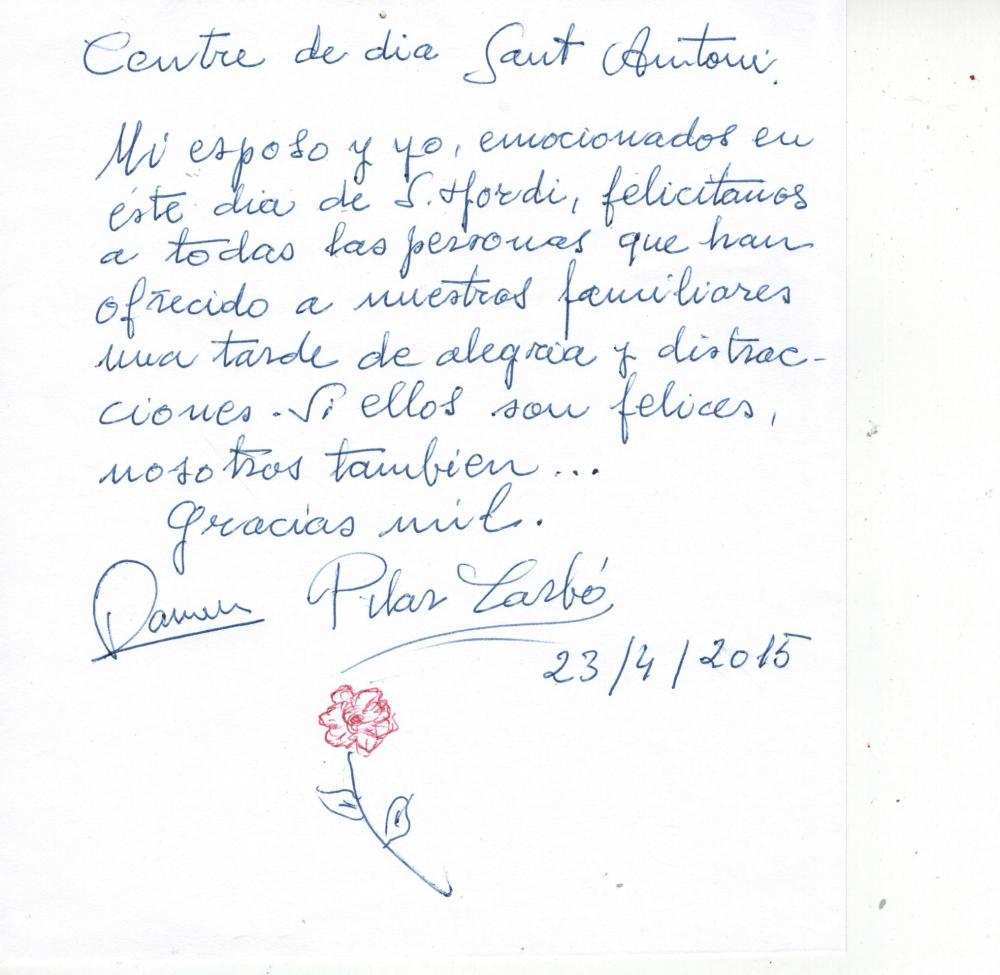 Centre de dia Sant Antoni.
Mi esposo y yo, emocionados en
éste dia de S. Jordi, felicitamos
a todas las personas que han
ofrecido a nuestros familiares
una tarde de alegria y distrac-
ciones. Si ellos son felices,
nosotros tambien...
Gracias mil.
Pilar
23/4/2015